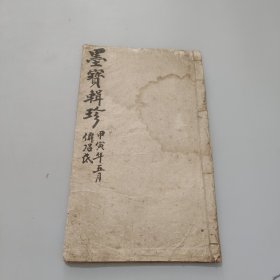 墨寶輯珍
甲寅年五月